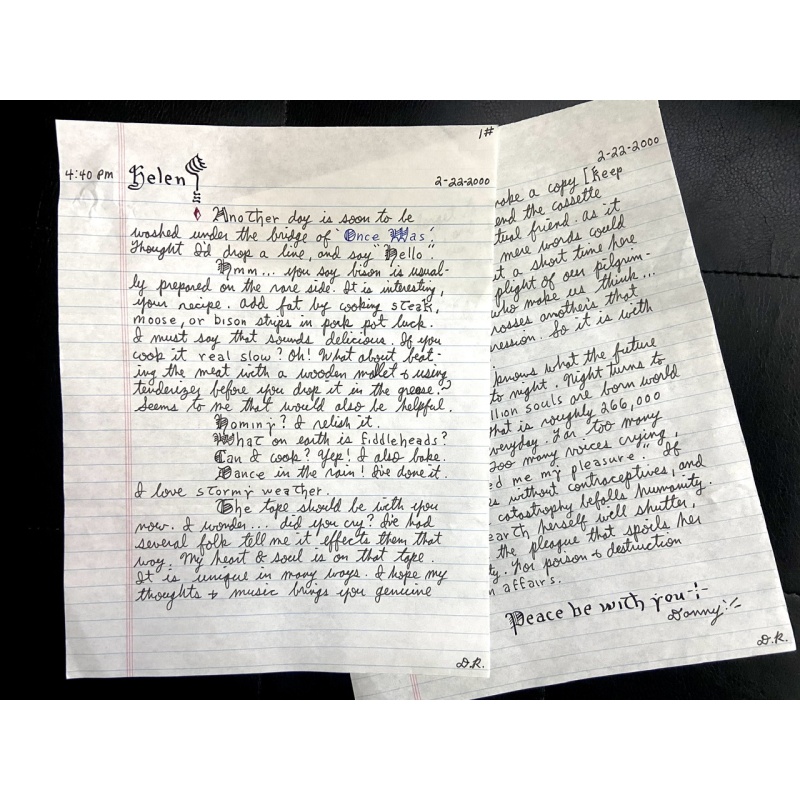 1#
4:40 PM Helen
2-22-2000
Another day is soon to be
washed under the bridge of 'Once Was'.
Thought I'd drop a line, and say "Hello".
Hmm... you say bison is usual-
ly prepared on the rare side. It is interesting,
your recipe. Add fat by cooking steak,
moose, or bison strips in pork pot luck.
I must say that sounds delicious. If you
cook it real slow? Oh! What about beat-
ing the meat with a wooden mallet & using
tenderizer before you drop it in the grease?
Seems to me that would also be helpful.
Hominy? I relish it.
What on earth is fiddleheads?
Can I cook? Yep! I also bake.
Dance in the rain! I've done it.
I love stormy weather.
The tape should be with you
now. I wonder... did you cry? I've had
several folk tell me it effects them that
way. My heart & soul is on that tape.
It is unique in many ways. I hope my
thoughts & music brings you genuine
D.R.
2-22-2000
make a copy [Keep
end the cassette
tual friend. as it
mere words could
t a short time here
plight of our pilgrim-
who make us think...
rosses another's that
ression. So it is with
knows what the future
to night. Night turns to
llion souls are born world
that is roughly 266,000
everyday. Far too many
too many voices crying,
ed me my pleasure." If
s without contraceptives, and
catastrophy befalls humanity.
earth herself will shutter,
the plague that spoils her
ty. For poison & destruction
n affairs.
Peace be with you
Danny
D.R.